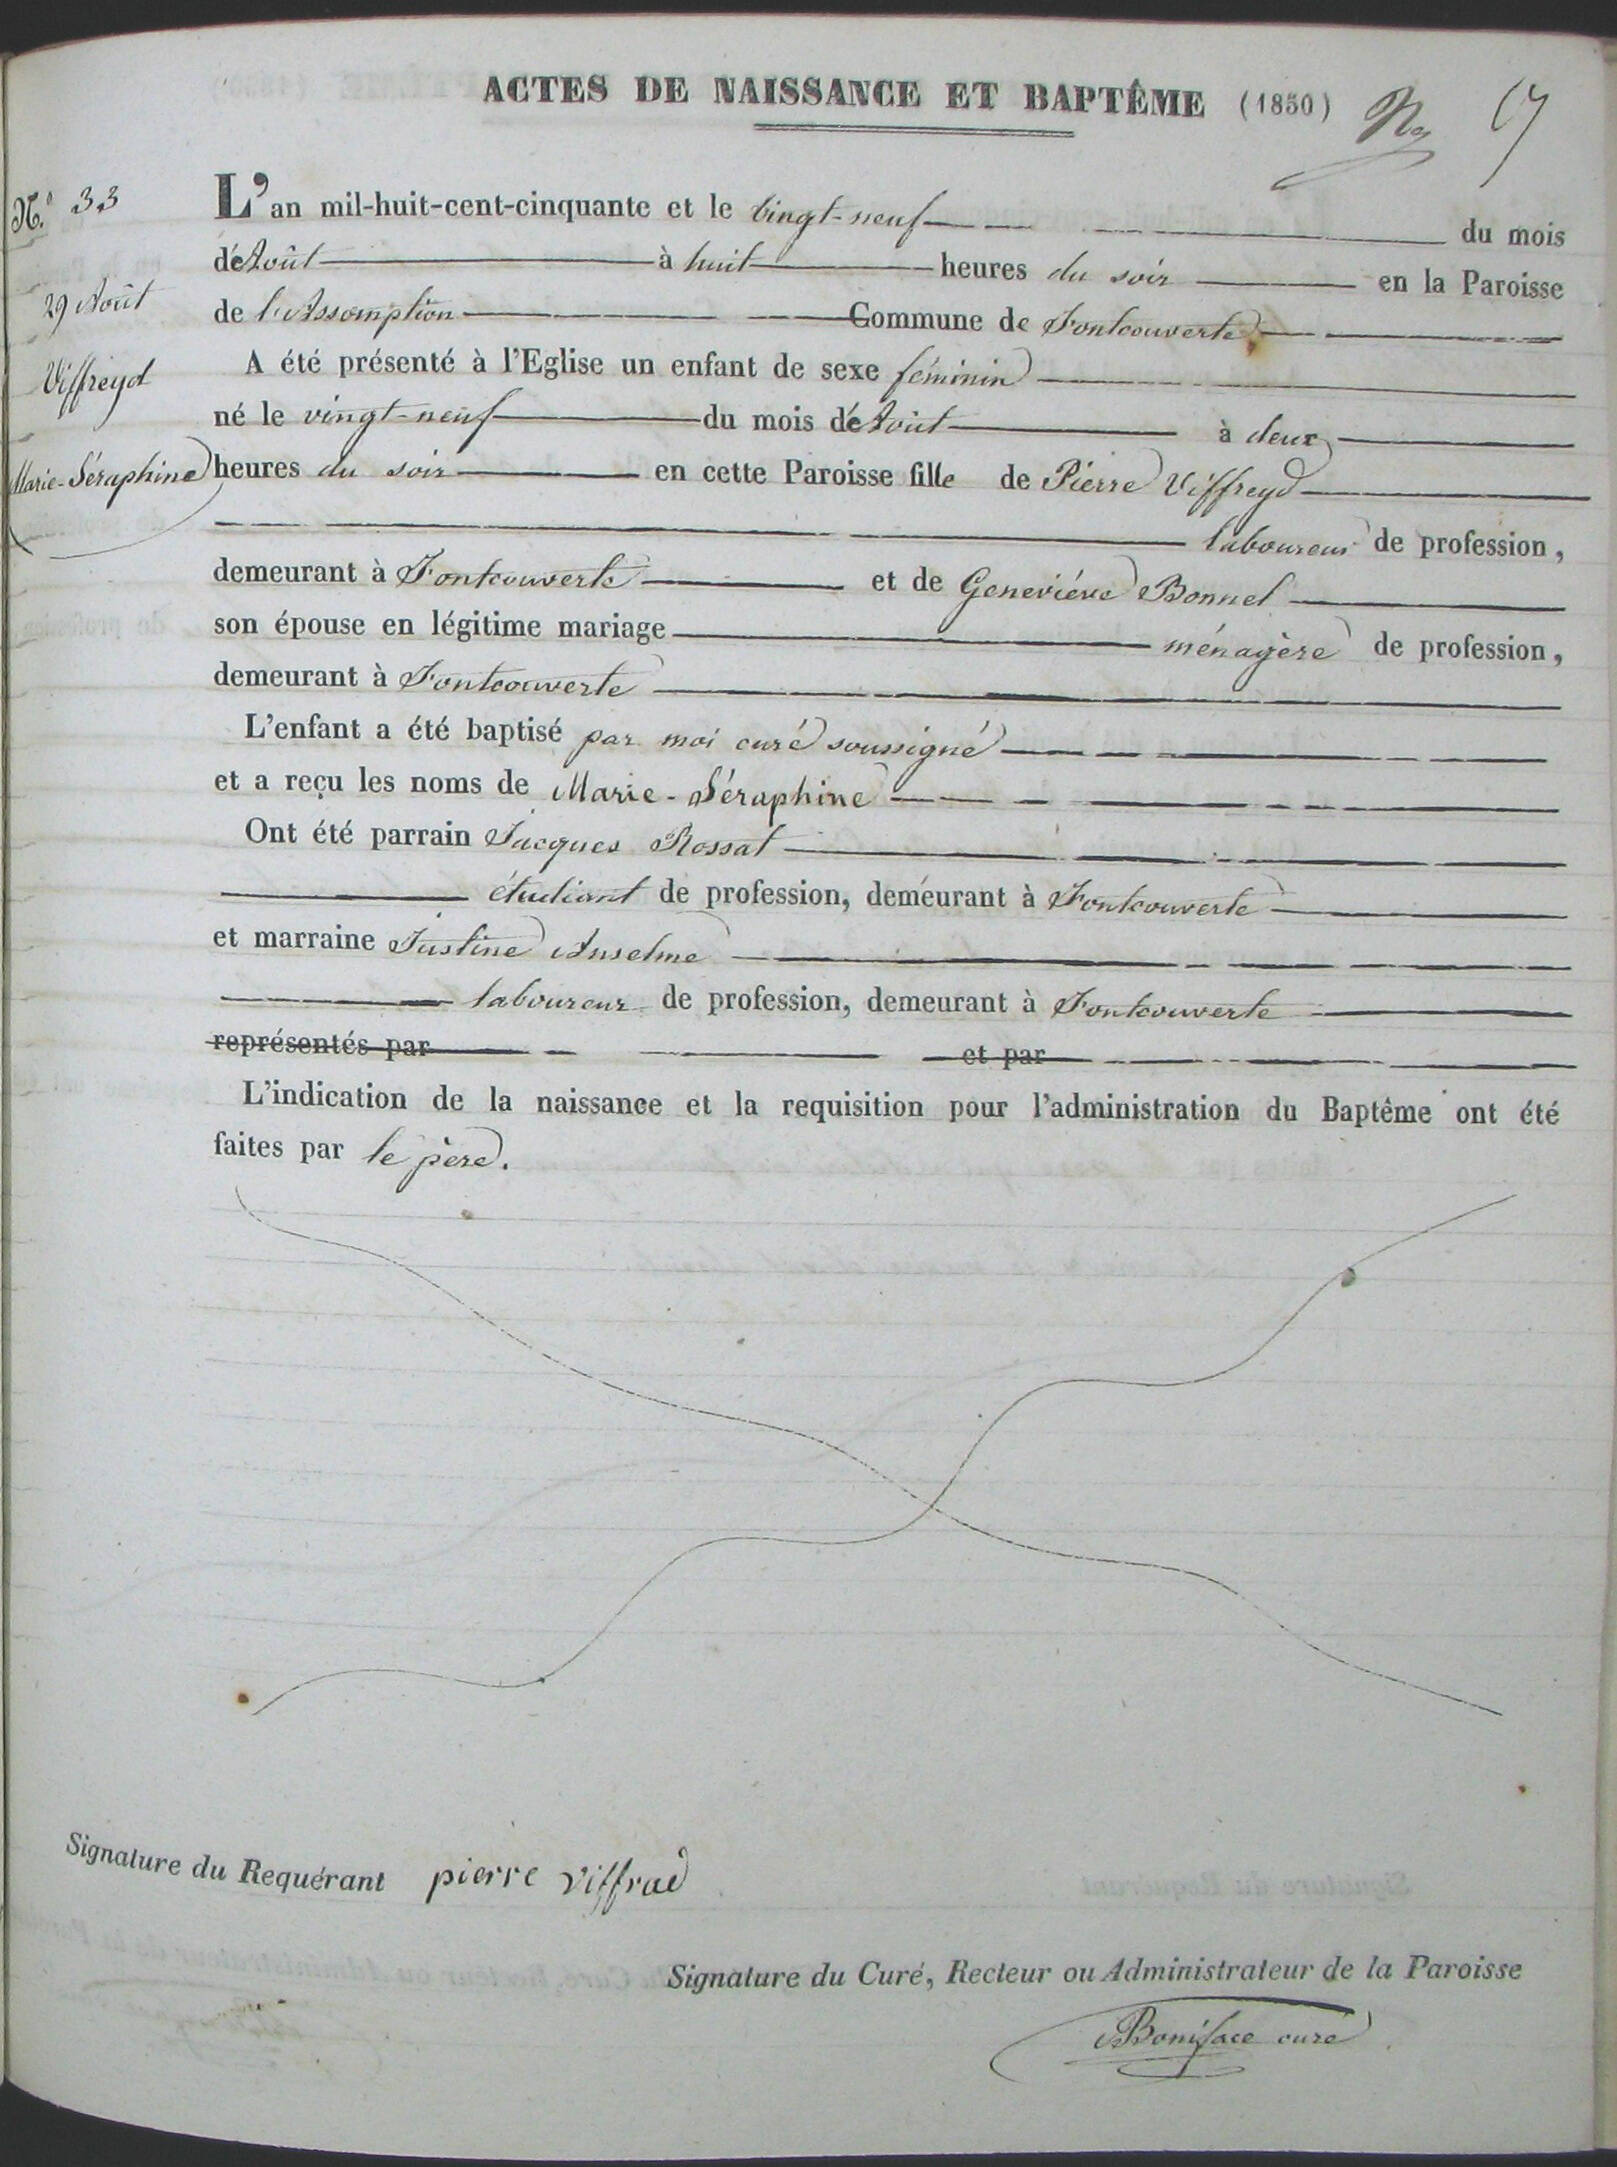 ACTES DE NAISSANCE ET BAPTÊME (1850)
N.° 33
29 Août
Viffreyd
Marie-Séraphine
L'an mil-huit-cent-cinquante et le vingt-neuf du mois
de Août à huit heures du soir en la Paroisse
de l'Assomption Commune de Fontcouverte
A été présenté à l'Eglise un enfant de sexe féminin
né le vingt-neuf du mois de Août à deux
heures du soir en cette Paroisse fille de Pierre Viffreyd
laboureur de profession,
demeurant à Fontcouverte et de Geneviéve Bonnel
son épouse en légitime mariage ménagère de profession,
demeurant à Fontcouverte
L'enfant a été baptisé par moi curé soussigné
et a reçu les noms de Marie-Séraphine
Ont été parrain Jacques Rossat
étudiant de profession, demeurant à Fontcouverte
et marraine Justine Anselme
laboureur de profession, demeurant à Fontcouverte
représentés par et par
L'indication de la naissance et la requisition pour l'administration du Baptême ont été
faites par le père.
Signature du Requérant pierre viffred
Signature du Curé, Recteur ou Administrateur de la Paroisse
Boniface curé